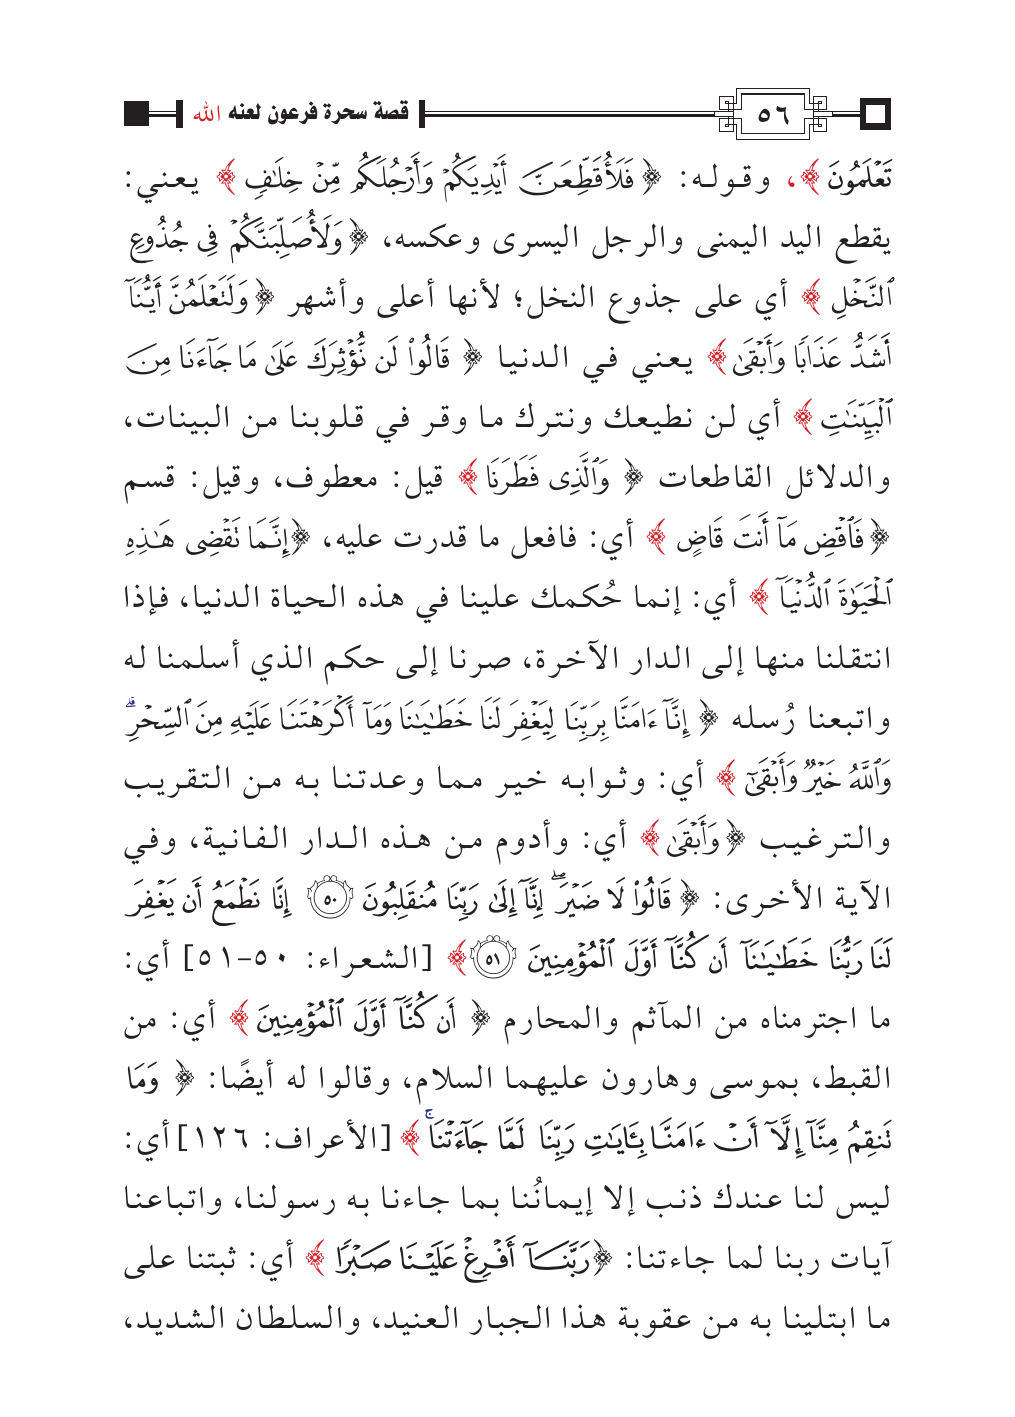 ٥٦ قصة سحرة فرعون لعنه الله
تَعْلَمُونَ ﴾، وقوله: ﴿ فَلَأُقَطِّعَنَّ أَيْدِيَكُمْ وَأَرْجُلَكُم مِّنْ خِلَٰفٍ ﴾ يعني:
يقطع اليد اليمنى والرجل اليسرى وعكسه، ﴿ وَلَأُصَلِّبَنَّكُمْ فِى جُذُوعِ
ٱلنَّخْلِ ﴾ أي على جذوع النخل؛ لأنها أعلى وأشهر ﴿ وَلَتَعْلَمُنَّ أَيُّنَآ
أَشَدُّ عَذَابًا وَأَبْقَىٰ ﴾ يعني في الدنيا ﴿ قَالُوا۟ لَن نُّؤْثِرَكَ عَلَىٰ مَا جَآءَنَا مِنَ
ٱلْبَيِّنَٰتِ ﴾ أي لن نطيعك ونترك ما وقر في قلوبنا من البينات،
والدلائل القاطعات ﴿ وَٱلَّذِى فَطَرَنَا ﴾ قيل: معطوف، وقيل: قسم
﴿ فَٱقْضِ مَآ أَنتَ قَاضٍ ﴾ أي: فافعل ما قدرت عليه، ﴿ إِنَّمَا تَقْضِى هَٰذِهِ
ٱلْحَيَوٰةَ ٱلدُّنْيَآ ﴾ أي: إنما حُكمك علينا في هذه الحياة الدنيا، فإذا
انتقلنا منها إلى الدار الآخرة، صرنا إلى حكم الذي أسلمنا له
واتبعنا رُسله ﴿ إِنَّآ ءَامَنَّا بِرَبِّنَا لِيَغْفِرَ لَنَا خَطَٰيَٰنَا وَمَآ أَكْرَهْتَنَا عَلَيْهِ مِنَ ٱلسِّحْرِ ۗ
وَٱللَّهُ خَيْرٌ وَأَبْقَىٰٓ ﴾ أي: وثوابه خير مما وعدتنا به من التقريب
والترغيب ﴿ وَأَبْقَىٰ ﴾ أي: وأدوم من هذه الدار الفانية، وفي
الآية الأخرى: ﴿ قَالُوا۟ لَا ضَيْرَ ۖ إِنَّآ إِلَىٰ رَبِّنَا مُنقَلِبُونَ ٥٠ إِنَّا نَطْمَعُ أَن يَغْفِرَ
لَنَا رَبُّنَا خَطَٰيَٰنَآ أَن كُنَّآ أَوَّلَ ٱلْمُؤْمِنِينَ ٥١ ﴾ [الشعراء: ٥٠-٥١] أي:
ما اجترمناه من المآثم والمحارم ﴿ أَن كُنَّآ أَوَّلَ ٱلْمُؤْمِنِينَ ﴾ أي: من
القبط، بموسى وهارون عليهما السلام، وقالوا له أيضًا: ﴿ وَمَا
تَنقِمُ مِنَّآ إِلَّآ أَنْ ءَامَنَّا بِـَٔايَٰتِ رَبِّنَا لَمَّا جَآءَتْنَا ۚ ﴾ [الأعراف: ١٢٦] أي:
ليس لنا عندك ذنب إلا إيمانُنا بما جاءنا به رسولنا، واتباعنا
آيات ربنا لما جاءتنا: ﴿ رَبَّنَآ أَفْرِغْ عَلَيْنَا صَبْرًا ﴾ أي: ثبتنا على
ما ابتلينا به من عقوبة هذا الجبار العنيد، والسلطان الشديد،